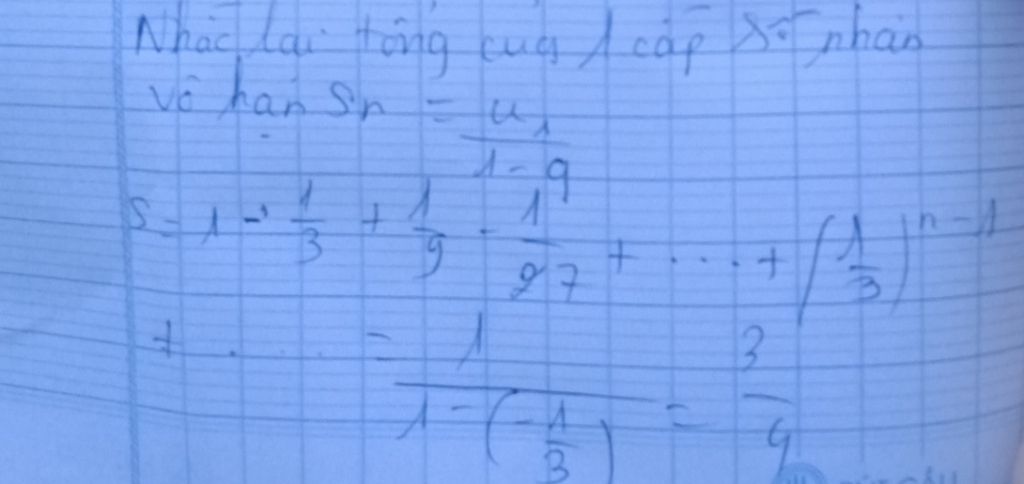 Nhắc lại tổng của 1 cấp số nhân
vô hạn Sn = u₁/(1-q)
S = 1 - 1/3 + 1/9 - 1/27 + .... + (1/3)^(n-1)
+ ..... = 1/(1-(-1/3)) = 3/4